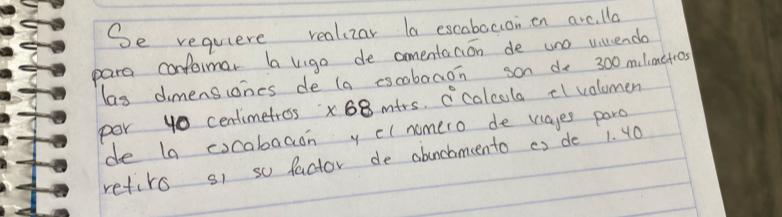 Se requiere realizar la escabación en arcilla
para conformar la viga de cimentación de una vivienda
las dimensiones de la escabación son de 300 milimetros
por 40 centimetros x 68 mtrs. calcula el volumen
de la escabación y el numero de viajes para
retiro si su factor de abundamiento es de 1.40